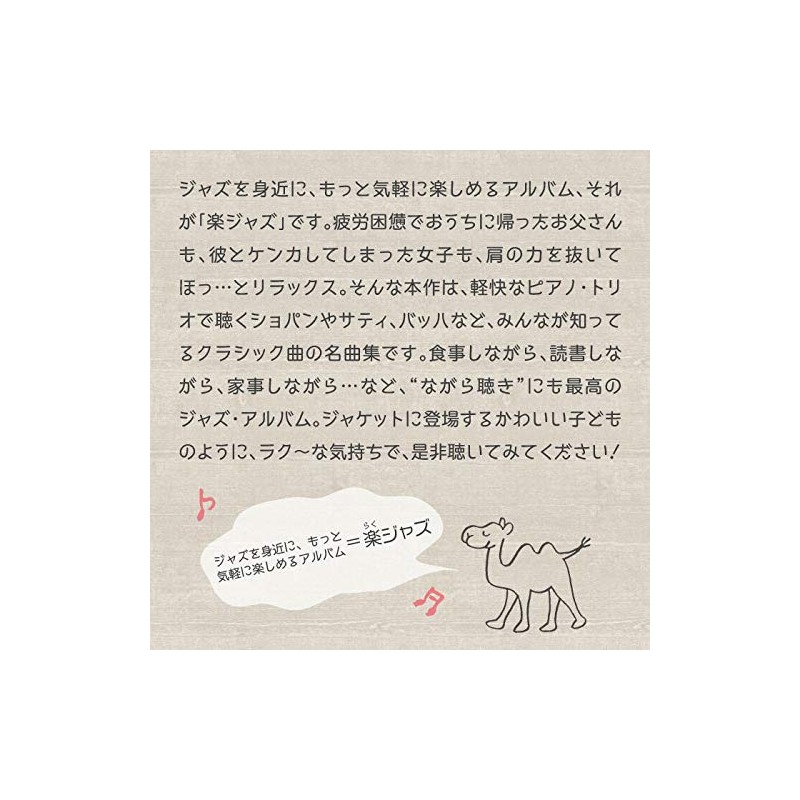 ジャズを身近に、もっと気軽に楽しめるアルバム、それ
が「楽ジャズ」です。疲労困憊でおうちに帰ったお父さん
も、彼とケンカしてしまった女子も、肩の力を抜いて
ほっ…とリラックス。そんな本作は、軽快なピアノ・トリ
オで聴くショパンやサティ、バッハなど、みんなが知って
るクラシック曲の名曲集です。食事しながら、読書しな
がら、家事しながら…など、“ながら聴き”にも最高の
ジャズ・アルバム。ジャケットに登場するかわいい子ども
のように、ラク〜な気持ちで、是非聴いてみてください！
ジャズを身近に、もっと
気軽に楽しめるアルバム
＝楽ジャズ
らく